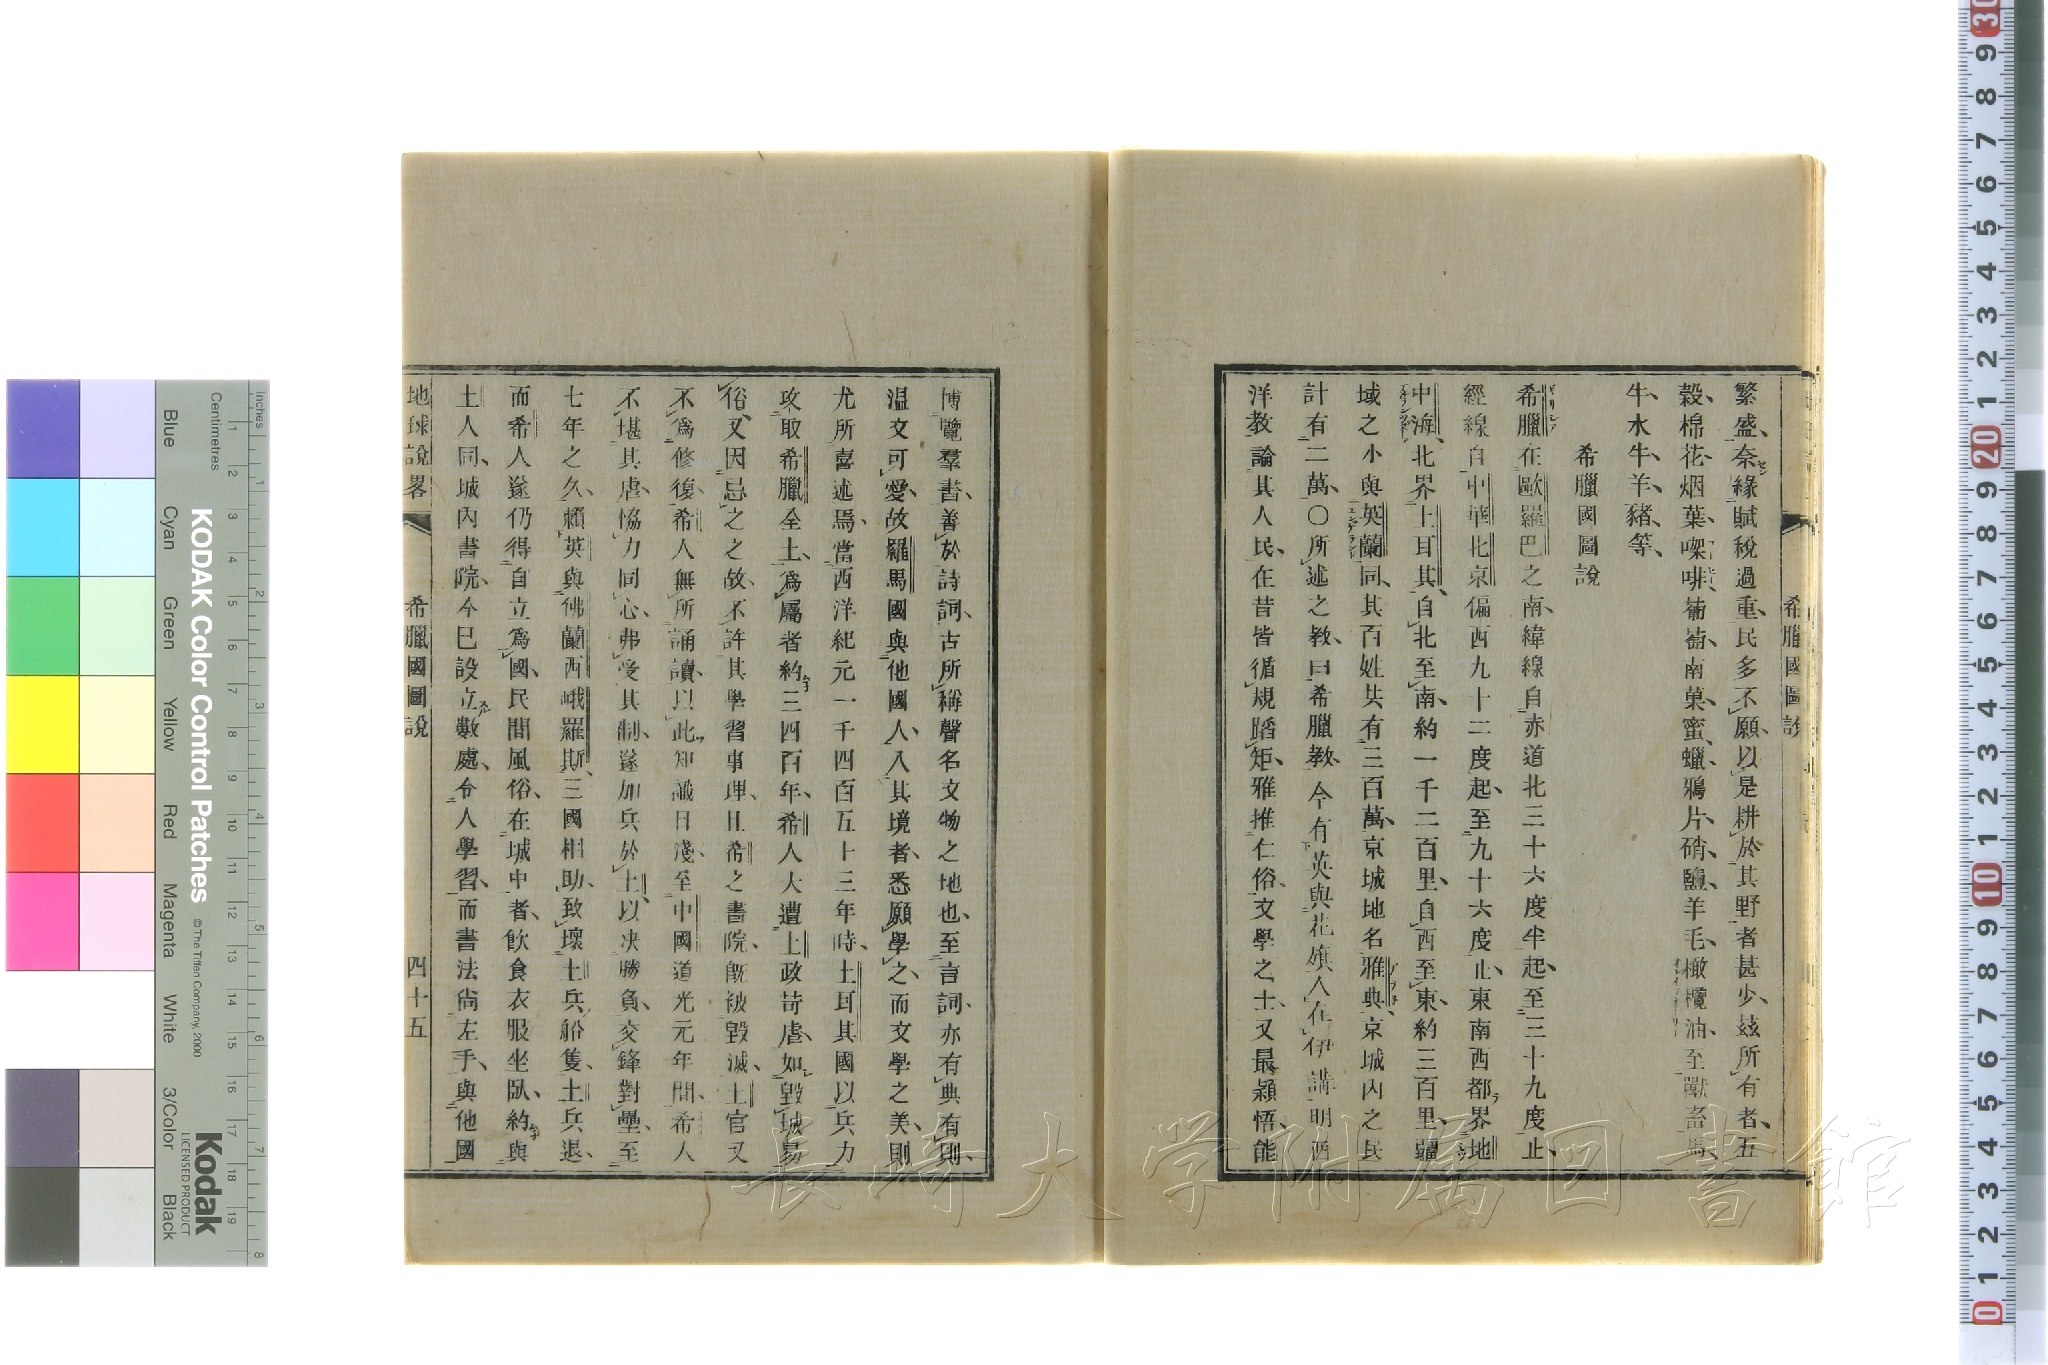 繁盛、奈緣賦稅過重、民多不願以是耕於其野者甚少、玆所有者、五
穀、棉花、烟葉、㗎啡、葡萄、南菓、蜜、蠟、鴉片、硝、鹽、羊毛、橄欖油、至獸畜、馬、
牛、水牛、羊、豬、等、
希臘國圖說
希臘在歐羅巴之南、緯線自赤道北三十六度半起、至三十九度止、
經線自中華北京偏西九十二度起、至九十六度止、東南西都界地
中海、北界土耳其、自北至南、約一千二百里、自西至東、約三百里、疆
域之小與英蘭同、其百姓共有三百萬、京城地名雅典、京城內之民
計有二萬、〇所述之教、曰希臘教、今有英與花旗人、在伊講明西
洋教、論其人民、在昔皆循規蹈矩、雅推仁俗、文學之士、又最穎悟、能
博覽羣書、善於詩詞、古所稱聲名文物之地也、至言詞、亦有典有則、
温文可愛、故羅馬國與他國人、入其境者、悉願學之、而文學之美、則
尤所喜述焉、當西洋紀元一千四百五十三年時、土耳其國以兵力
攻取希臘全土、爲屬者約三四百年、希人大遭土政苛虐、如毀城易
俗、又因忌之之故、不許其學習事理、且希之書院、旣被毀滅、土官又
不爲修復、希人無所誦讀、以此知識日淺、至中國道光元年間、希人
不堪其虐、協力同心、弗受其制、遂加兵於土、以决勝負、交鋒對壘、至
七年之久、賴英與佛蘭西峨羅斯三國相助、致壞土兵船隻、土兵退、
而希人遂仍得自立爲國、民間風俗、在城中者、飲食衣服坐臥、約與
土人同、城內書院、今已設立數處、令人學習、而書法尙左手、與他國
地球說畧
希臘國圖說
四十五
希臘國圖說
長崎大学附属図書館
KODAK Color Control Patches
© The Tiffen Company, 2000
Kodak
LICENSED PRODUCT
Inches
Centimetres
Blue
Cyan
Green
Yellow
Red
Magenta
White
3/Color
Black